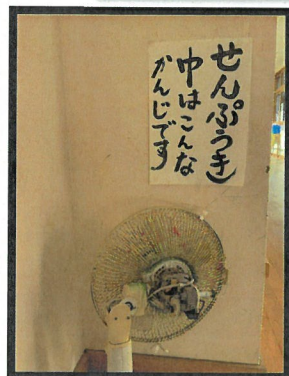 せんぷうき
中はこんな
かんじです